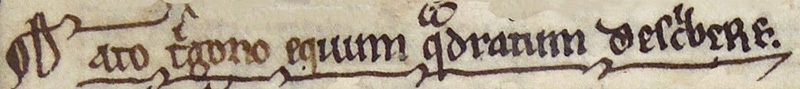 Dato tͥgono equum qͣdratum descͥbere.